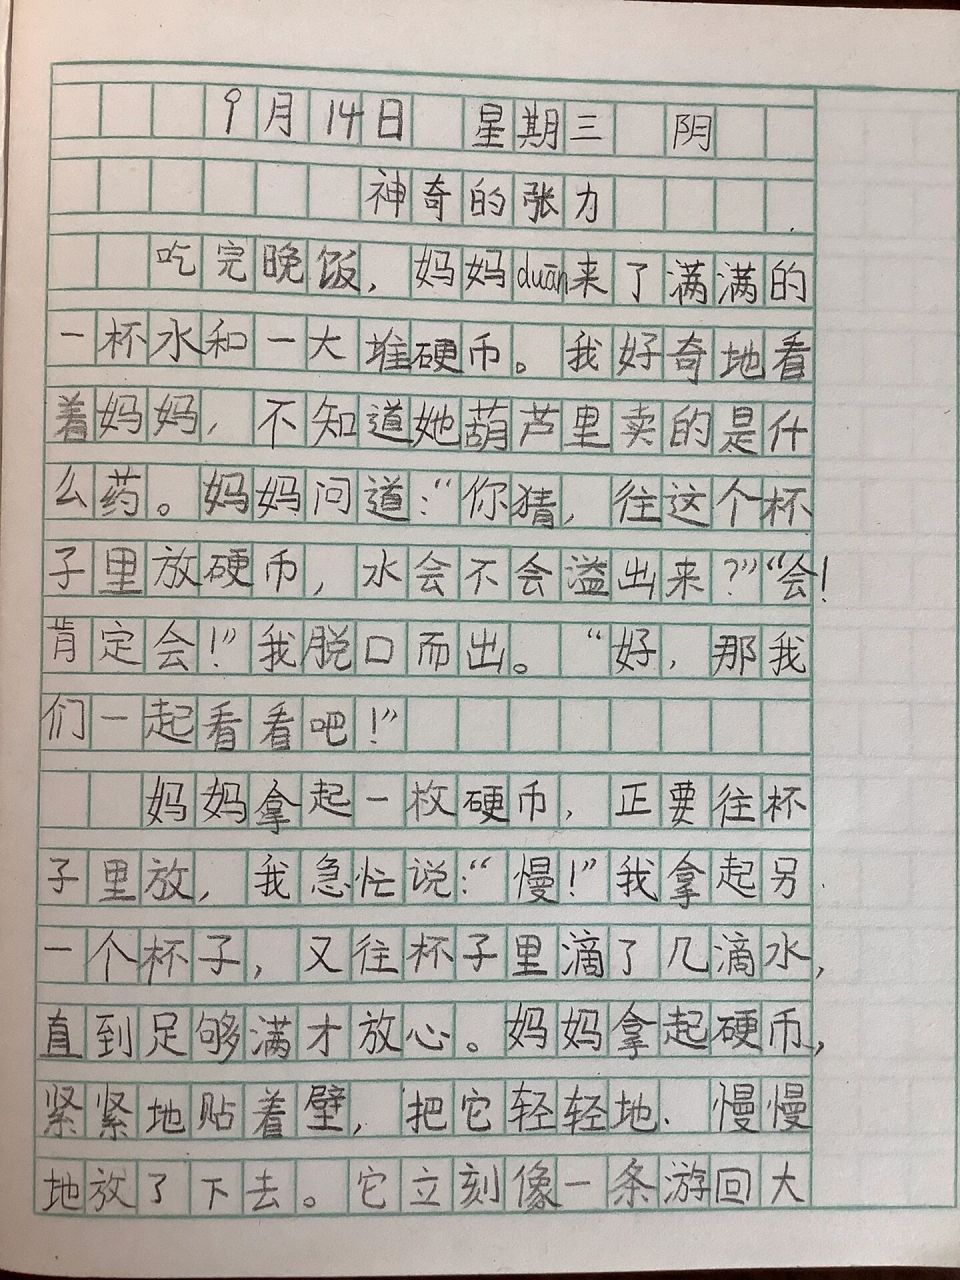 9月14日 星期三 阴
神奇的张力
吃完晚饭，妈妈duān来了满满的
一杯水和一大堆硬币。我好奇地看
着妈妈，不知道她葫芦里卖的是什
么药。妈妈问道：“你猜，往这个杯
子里放硬币，水会不会溢出来？”“会！
肯定会！”我脱口而出。“好，那我
们一起看看吧！”
妈妈拿起一枚硬币，正要往杯
子里放，我急忙说：“慢！”我拿起另
一个杯子，又往杯子里滴了几滴水，
直到足够满才放心。妈妈拿起硬币，
紧紧地贴着壁，把它轻轻地、慢慢
地放了下去。它立刻像一条游回大